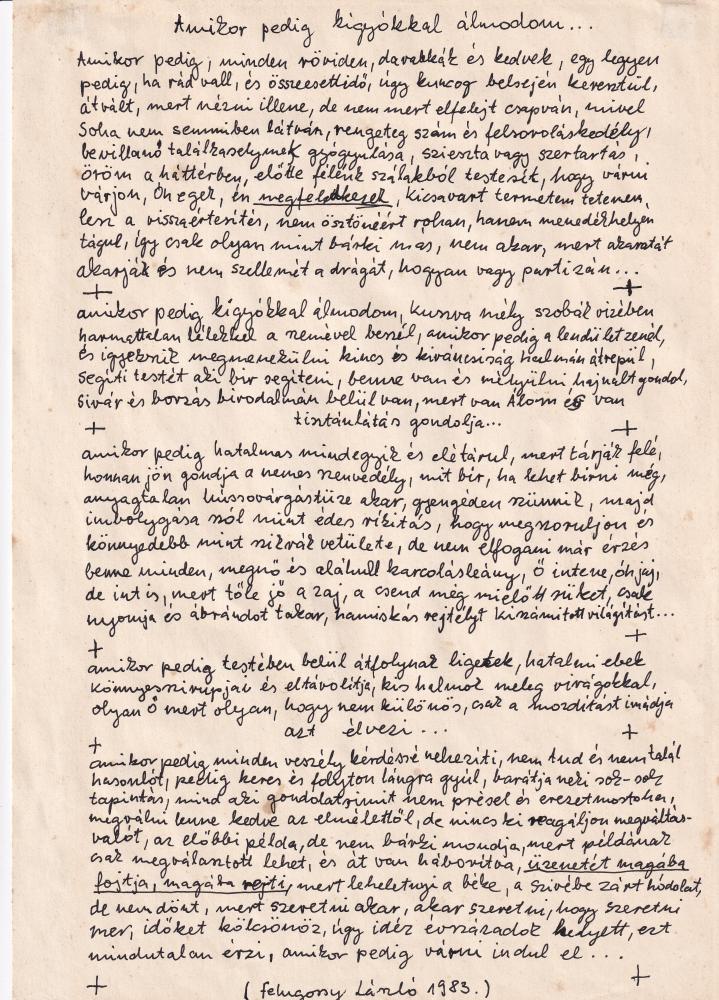 Amikor pedig kigyókkal álmodom...
Amikor pedig, minden röviden, darabkák és kedvek, egy legyen
pedig, ha rád vall, és összeesettidő, úgy kuncog belsején keresztül,
átvált, mert nézni illene, de nem mert elfelejt csapván, mivel
Soha nem semmiben látván, rengeteg szám és felsoroláskedély,
bevillanó találkaselymek gyógyulása, szieszta vagy szertartás,
öröm a háttérben, előtte félénk szálakból testesít, hogy várni
várjon, Óh egek, én megfeledkezek, kicsavart termetem tetemen,
lesz a visszaértesítés, nem ösztönéért rohan, hanem menedékhelyen
tágul, így csak olyan mint bárki mas, nem akar, mert akaratát
akarják és nem szellemét a drágát, hogyan vagy partizán...
+ +
amikor pedig kigyókkal álmodom, kuszva mély szobák vizében
harmattalan lélekkel a nemével beszél, amikor pedig a lendület zenél,
és igyekszik megmenekülni kincs és kiváncsiság halmán átrepül,
segiti testét aki bir segiteni, benne van és mélyülni hajnalt gondol,
sivár és borzas birodalmán belül van, mert van Álom és van
tisztánlátás gondolja...
+ +
amikor pedig hatalmas mindegyik és elétárul, mert tárják felé,
honnan jön gondja a nemes szenvedély, mit bír, ha lehet birni még,
anyagtalan hússovárgástüze akar, gyengéden szünnik, majd
imbolygása szól mint édes rikitás, hogy megszoruljon és
könnyedebb mint szikrák vetülete, de nem elfogani már érzés
benne minden, megnő és aláhull karcolásleány, Ő intene, óh jaj,
de int is, mert tőle jő a zaj, a csend még mielőtt süket, csak
nyomja és ábrándot takar, hamiskás rejtélyt kiszámított világítást...
+ +
amikor pedig testében belül átfolynak ligetek, hatalmi ebek
könnyesszirupjai és eltávolítja, kis halmok meleg virágokkal,
olyan Ő mert olyan, hogy nem különös, csak a mozditást imádja
azt élvezi...
+ +
amikor pedig minden veszély kérdéssé neheziti, nem tud és nem talál
hasonlót, pedig keres és folyton lángra gyúl, barátja neki sok-sok
tapintás, mind aki gondolatrimit nem présel és erezetmostoha,
megválni lenne kedve az elmélettől, de nincs ki reagáljon megváltás-
valót, az előbbi példa, de nem bárki mondja, mert példának
csak megválasztott lehet, és át van háborítva, üzenetét magába
fojtja, magába rejti, mert leheletnyi a béke, a szivébe zárt hódolat,
de nem dönt, mert szeretni akar, akar szeretni, hogy szeretni
mer, időket kölcsönöz, úgy idéz évszázadok helyett, ezt
mindutalan érzi, amikor pedig várni indul el...
+ +
(felugossy László 1983.)